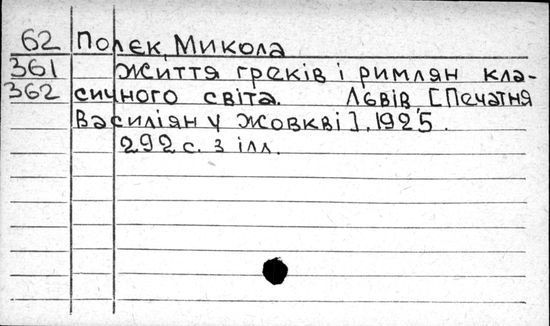 62 Полєк, Микола
361 Життя греків і римлян кла-
362 сичного світа. Львів, [Печатня
Василіян у Жовкві], 1925.
292 с. з ілл.